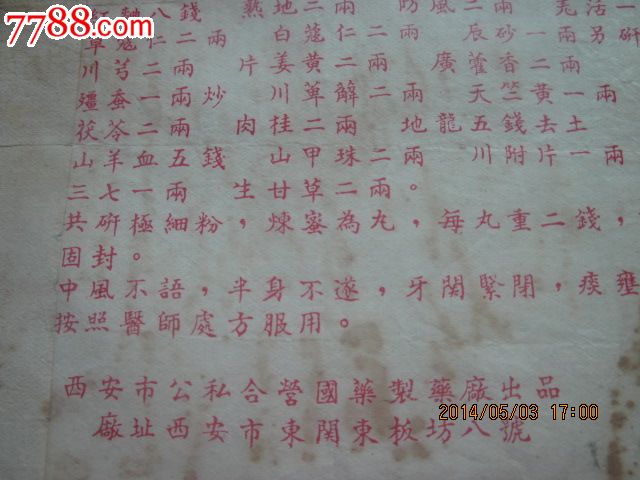 7788.com
八錢 熟地二兩 防風二兩 羌活一
草蔻仁二兩 白蔻仁二兩 辰砂一兩另研
川芎二兩 片姜黃二兩 廣藿香二兩
殭蚕一兩炒 川萆薢二兩 天竺黃一兩
茯苓二兩 肉桂二兩 地龍五錢去土
山羊血五錢 山甲珠二兩 川附片一兩
三七一兩 生甘草二兩。
共研極細粉，煉蜜為丸，每丸重二錢，
固封。
中風不語，半身不遂，牙関緊閉，痰壅
按照醫師處方服用。
西安市公私合營國藥製藥廠出品
廠址西安市東関東板坊八號
2014/05/03 17:00